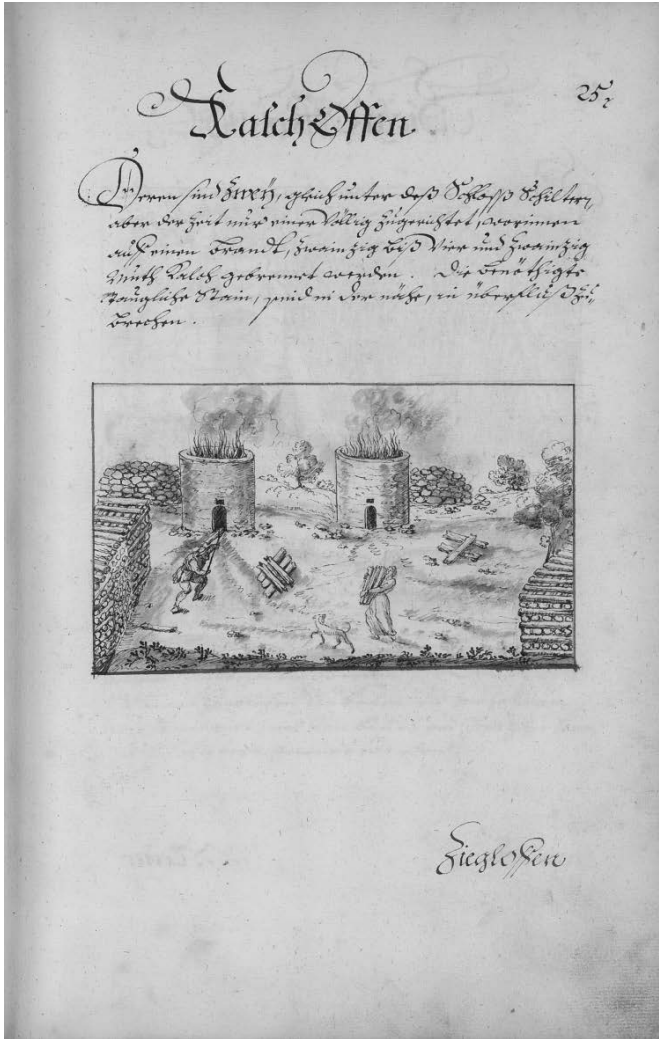 25
Kalch Offen
Deren sind Zweÿ, gleich unter deß Schloß Schiltern,
aber der Zeit nur einer Völlig Zugerichtet, worinnen
auf einen Brandt, Zwainzig biß Vier und Zwainzig
Muth Kalch gebrennet werden. Die benöthigte
Taugliche Stain, sind in der nähe, in überfluß zu
brechen.
Zieglofen